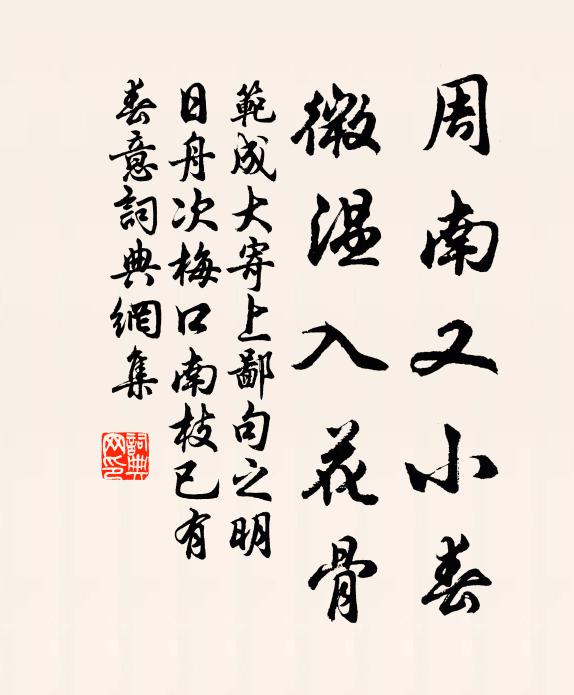 周南又小春
微温入花骨
範成大寄上鄙句之明
日舟次梅口南枝已有
春意詞典網集
詞典网印